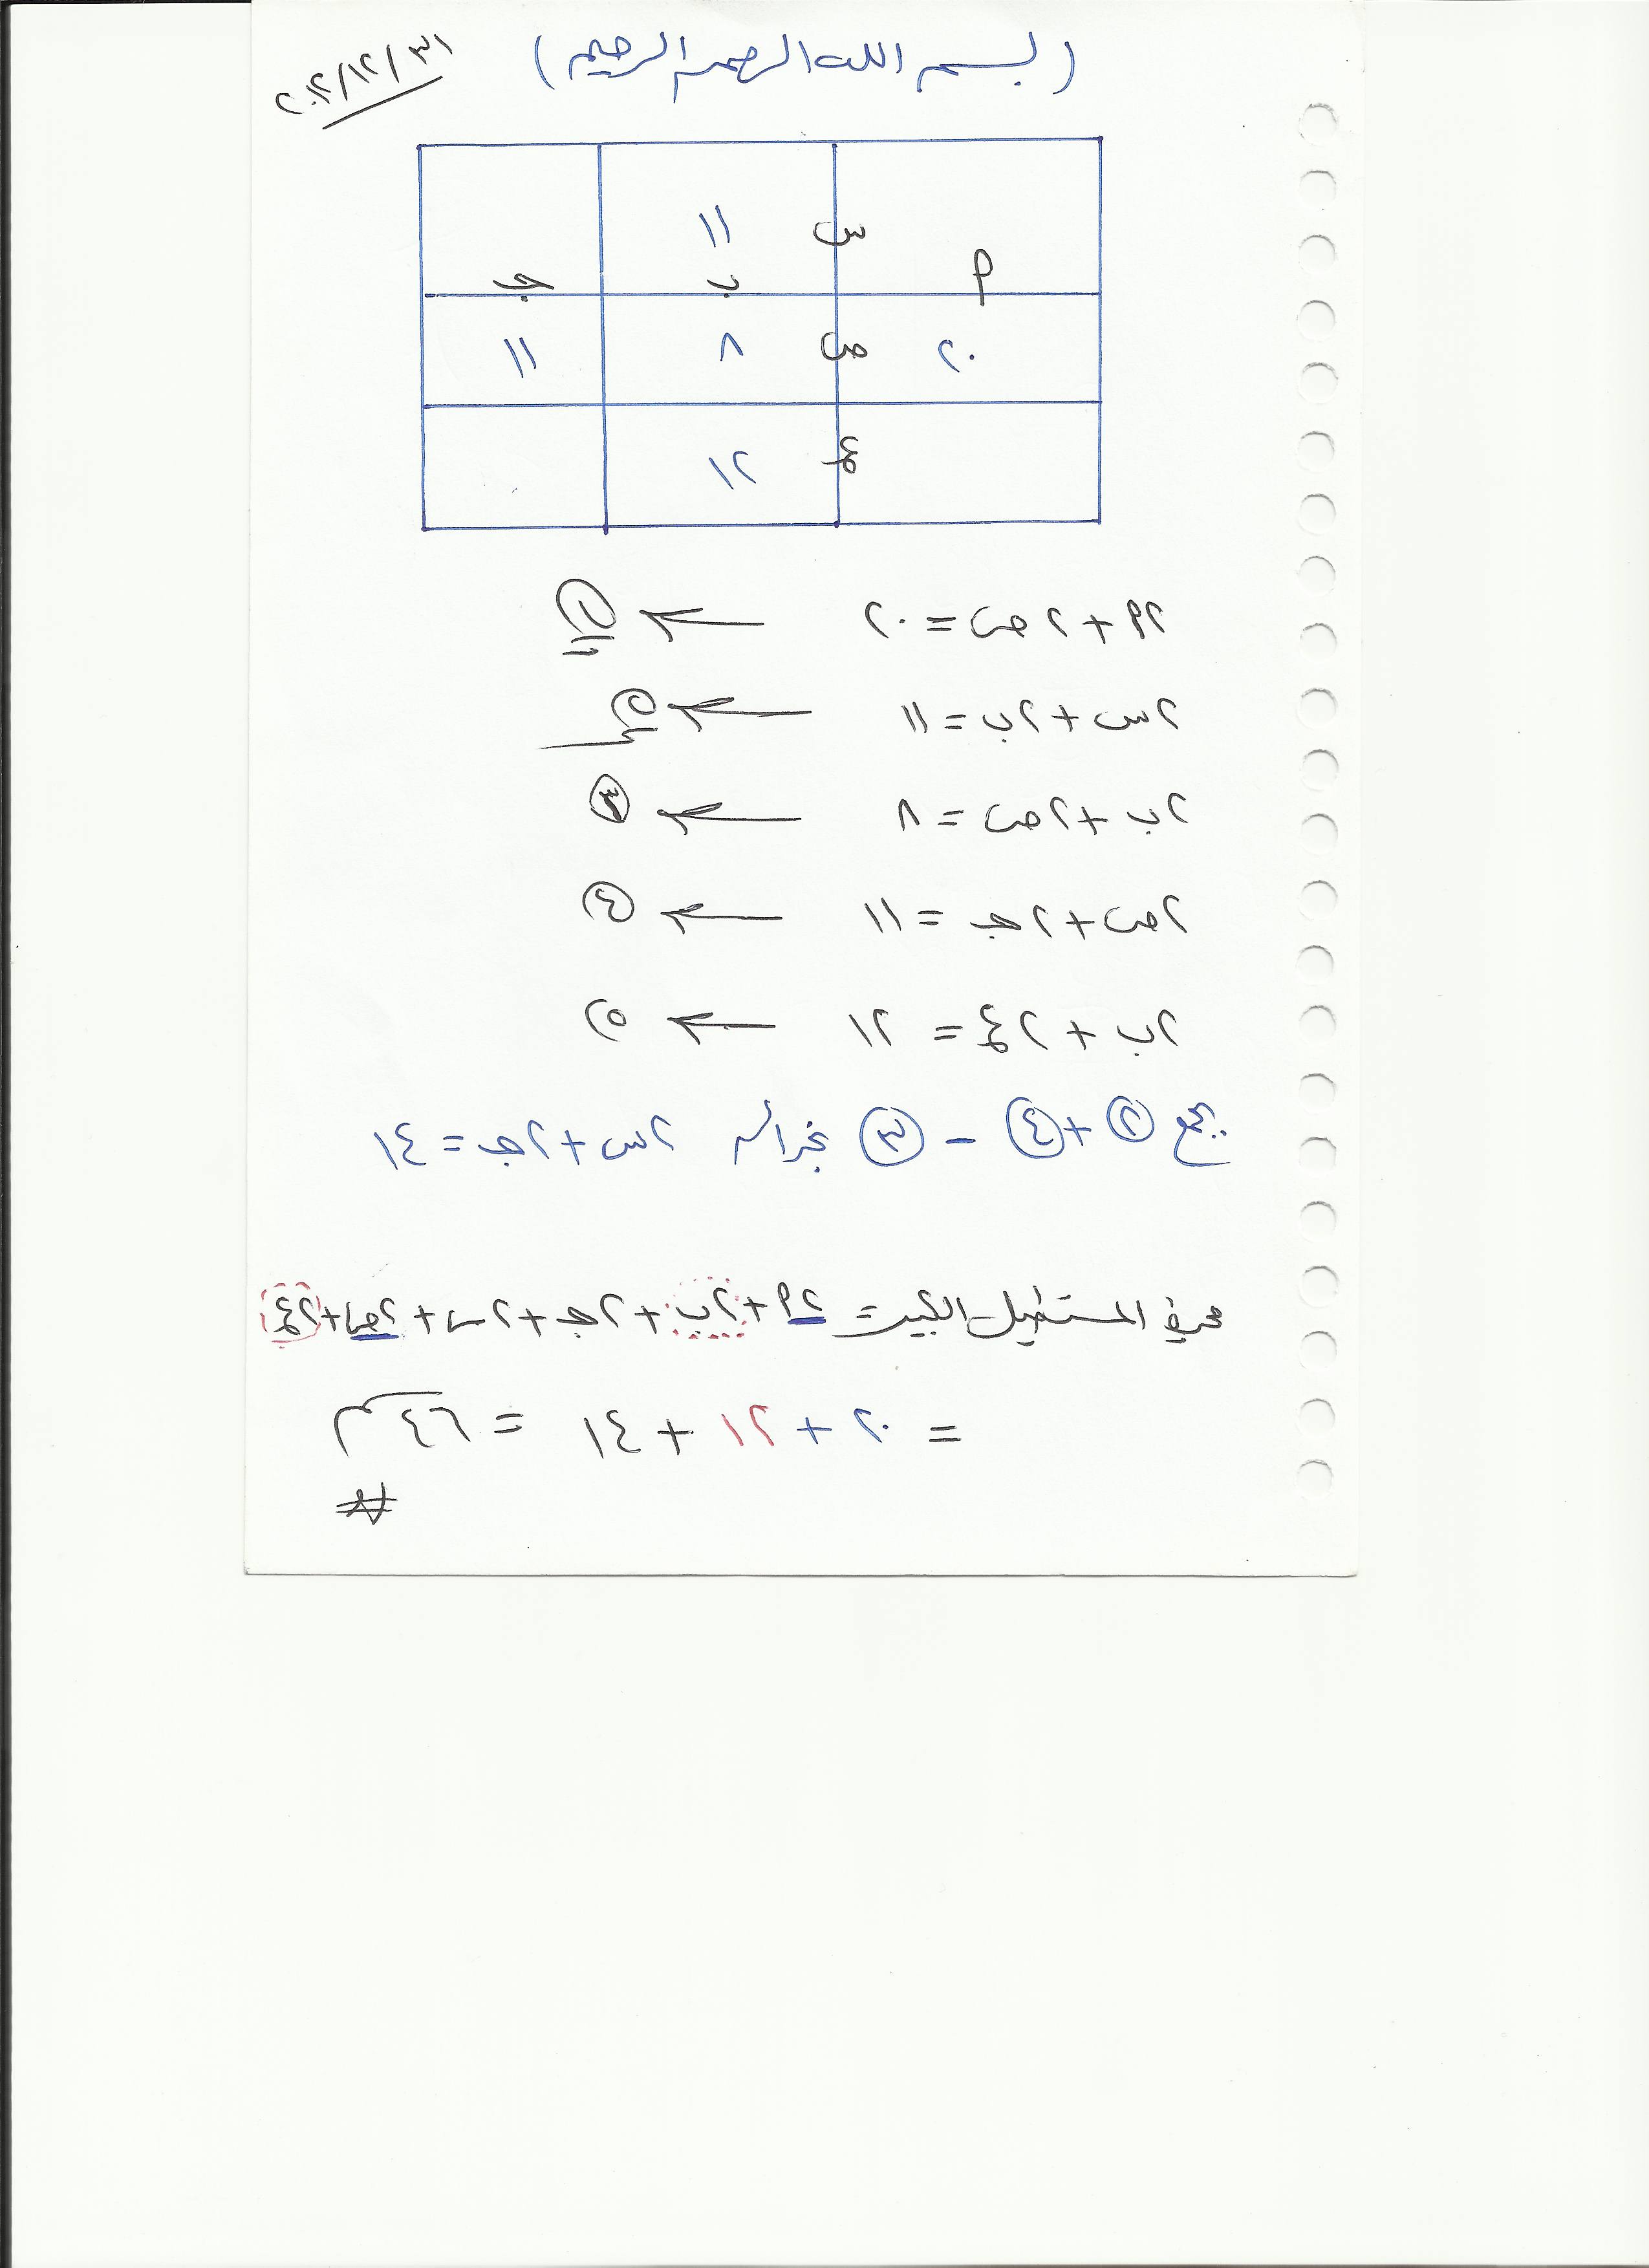 (بسم الله الرحمن الرحيم)
٢٠١٢/١٢/٣١
١١ س أ
جـ ب
١١ ٨ ص ٢٠
١٢ ع
٢أ + ٢ص = ٢٠ ←
٢س + ٢ب = ١١ ←
٢ب + ٢ص = ٨ ← ③
٢ص + ٢جـ = ١١ ← ④
٢ب + ٢ع = ١٢ ← ⑤
بجمع ② + ④ - ③ نجد أن ٢س + ٢جـ = ١٤
محيط المستطيل الكبير = ٢أ + ٢ب + ٢جـ + ٢س + ٢ص + ٢ع
= ٢٠ + ١٢ + ١٤ = ٤٦ م
#